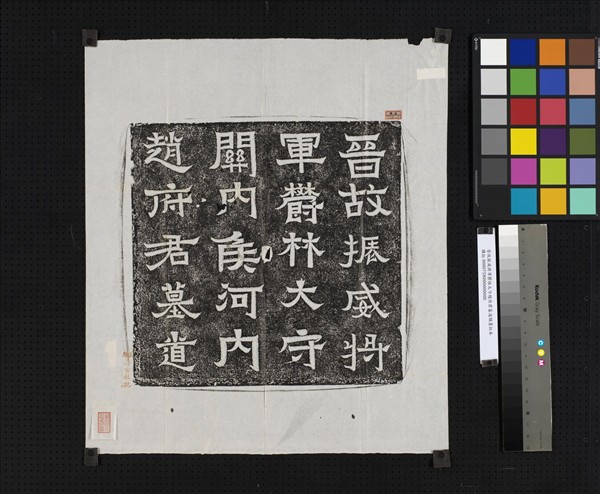 晉故振威將
軍鬱林太守
關內侯河內
趙府君墓道
Kodak
C
M